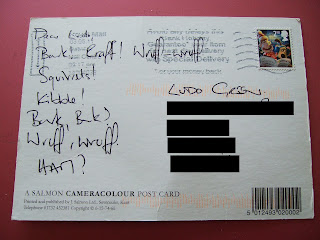 Dear Ludo
Bark! Kraff! Wruff-wruff
Squirrels!
Kibble!
Bark, Bark?
Wruff, wruff.
HAM?
with Special Delivery
*or your money back
LUDO
A SALMON CAMERACOLOUR POST CARD
Printed and published by J. Salmon Ltd., Sevenoaks, Kent
Telephone 01732 452381 Copyright
5 012493 020002